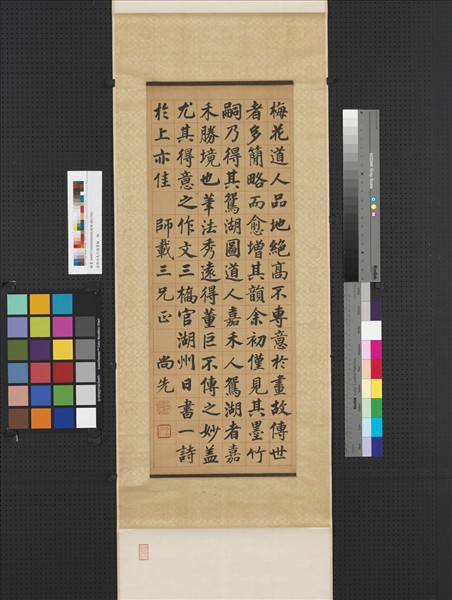 梅花道人品地絶高不專意於畫故傳世
者多簡略而愈增其韻余初僅見其墨竹
嗣乃得其鴛湖圖道人嘉禾人鴛湖者嘉
禾勝境也筆法秀遠得董巨不傳之妙蓋
尤其得意之作文三橋官湖州日書一詩
於上亦佳 師載三兄正 尚先